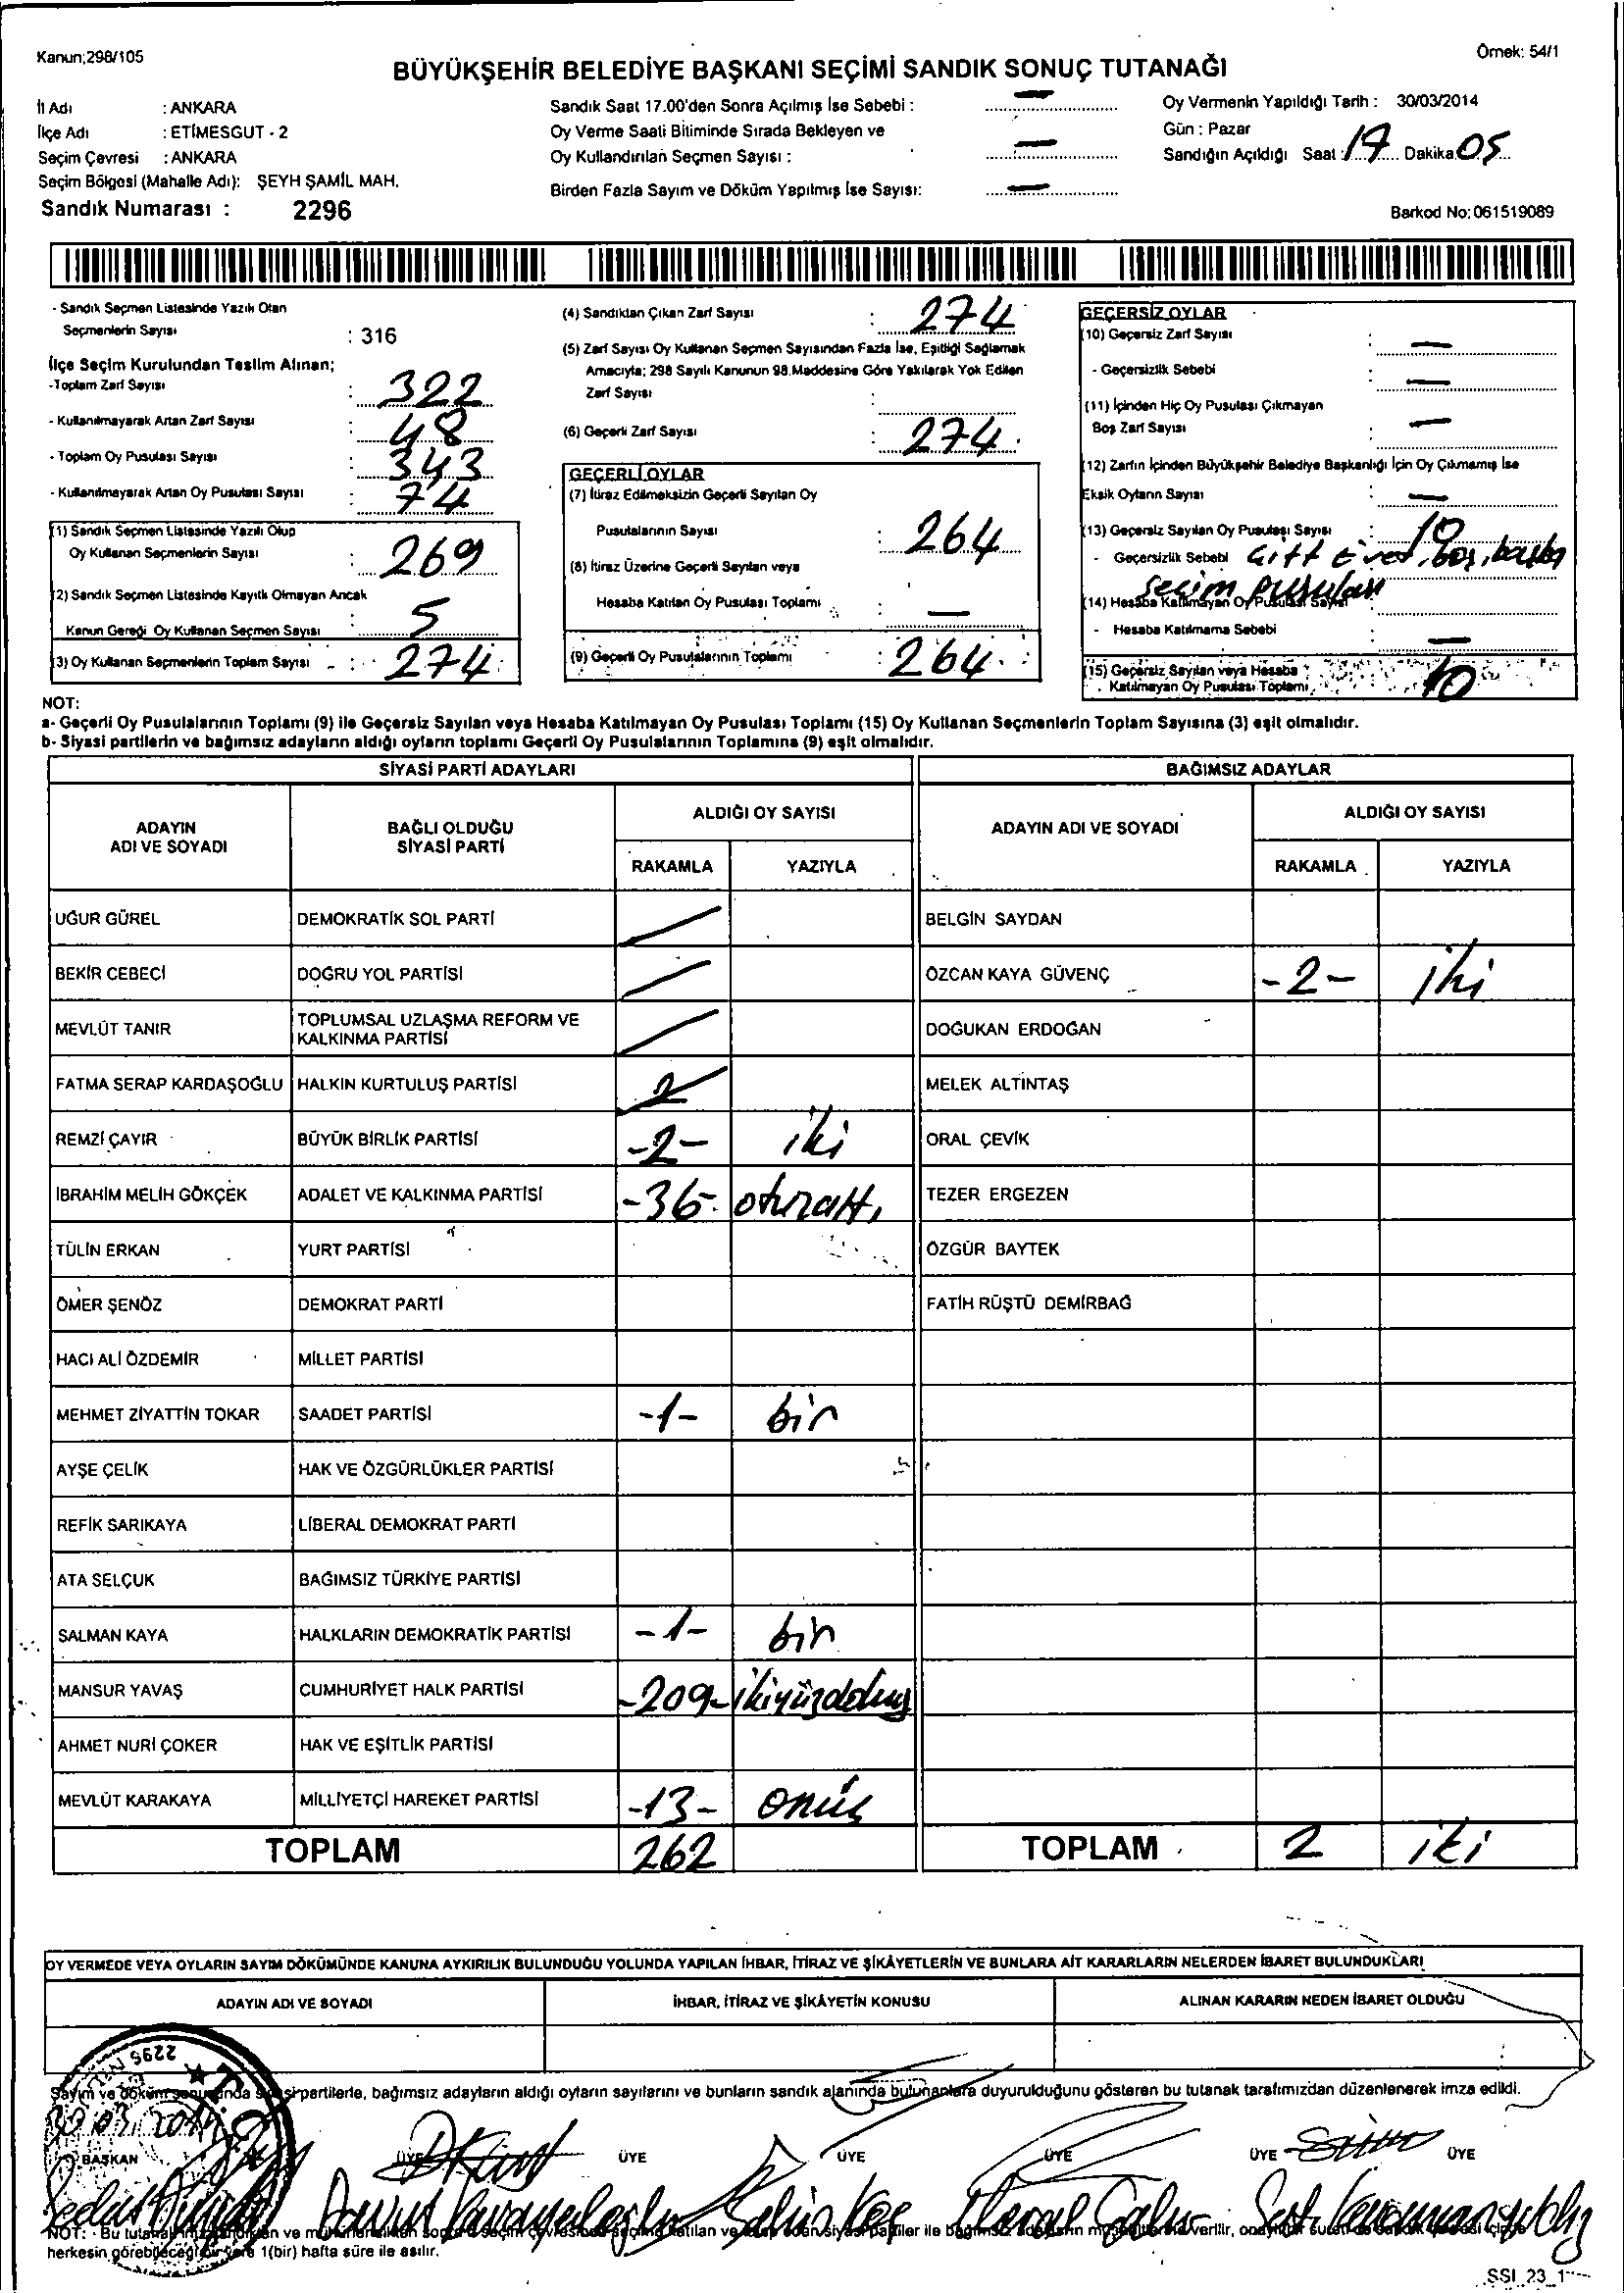 Kanun;298/105
Örnek: 54/1
BÜYÜKŞEHİR BELEDİYE BAŞKANI SEÇİMİ SANDIK SONUÇ TUTANAĞI
İl Adı : ANKARA
İlçe Adı : ETİMESGUT - 2
Seçim Çevresi : ANKARA
Seçim Bölgesi (Mahalle Adı): ŞEYH ŞAMİL MAH.
Sandık Numarası : 2296
Sandık Saat 17.00'den Sonra Açılmış İse Sebebi : —
Oy Verme Saati Bitiminde Sırada Bekleyen ve
Oy Kullandırılan Seçmen Sayısı : —
Birden Fazla Sayım ve Döküm Yapılmış İse Sayısı: —
Oy Vermenin Yapıldığı Tarih : 30/03/2014
Gün : Pazar
Sandığın Açıldığı Saat : 17 Dakika 05
Barkod No: 061519089
- Sandık Seçmen Listesinde Yazılı Olan
Seçmenlerin Sayısı : 316
İlçe Seçim Kurulundan Teslim Alınan;
-Toplam Zarf Sayısı : 322
- Kullanılmayarak Artan Zarf Sayısı : 48
- Toplam Oy Pusulası Sayısı : 343
- Kullanılmayarak Artan Oy Pusulası Sayısı : 74
(1) Sandık Seçmen Listesinde Yazılı Olup
Oy Kullanan Seçmenlerin Sayısı : 269
(2) Sandık Seçmen Listesinde Kayıtlı Olmayan Ancak
Kanun Gereği Oy Kullanan Seçmen Sayısı : 5
(3) Oy Kullanan Seçmenlerin Toplam Sayısı : 274
(4) Sandıktan Çıkan Zarf Sayısı : 274
(5) Zarf Sayısı Oy Kullanan Seçmen Sayısından Fazla İse, Eşitliği Sağlamak
Amacıyla; 298 Sayılı Kanunun 98.Maddesine Göre Yakılarak Yok Edilen
Zarf Sayısı :
(6) Geçerli Zarf Sayısı : 274
GEÇERLİ OYLAR
(7) İtiraz Edilmeksizin Geçerli Sayılan Oy
Pusulalarının Sayısı : 264
(8) İtiraz Üzerine Geçerli Sayılan veya
Hesaba Katılan Oy Pusulası Toplamı : —
(9) Geçerli Oy Pusulalarının Toplamı : 264
GEÇERSİZ OYLAR
(10) Geçersiz Zarf Sayısı : —
- Geçersizlik Sebebi : —
(11) İçinden Hiç Oy Pusulası Çıkmayan
Boş Zarf Sayısı : —
(12) Zarfın İçinden Büyükşehir Belediye Başkanlığı İçin Oy Çıkmamış İse
Eksik Oyların Sayısı : —
(13) Geçersiz Sayılan Oy Pusulası Sayısı : 10
- Geçersizlik Sebebi Çift Evet, boş, başka
seçim pusulası
(14) Hesaba Katılmayan Oy Pusulası Sayısı
- Hesaba Katılmama Sebebi : —
(15) Geçersiz Sayılan veya Hesaba
Katılmayan Oy Pusulası Toplamı 10
NOT:
a- Geçerli Oy Pusulalarının Toplamı (9) ile Geçersiz Sayılan veya Hesaba Katılmayan Oy Pusulası Toplamı (15) Oy Kullanan Seçmenlerin Toplam Sayısına (3) eşit olmalıdır.
b- Siyasi partilerin ve bağımsız adayların aldığı oyların toplamı Geçerli Oy Pusulalarının Toplamına (9) eşit olmalıdır.
SİYASİ PARTİ ADAYLARI
BAĞIMSIZ ADAYLAR
ADAYIN ADI VE SOYADI
BAĞLI OLDUĞU SİYASİ PARTİ
ALDIĞI OY SAYISI
RAKAMLA YAZIYLA
ADAYIN ADI VE SOYADI
ALDIĞI OY SAYISI
RAKAMLA YAZIYLA
UĞUR GÜREL DEMOKRATİK SOL PARTİ BELGİN SAYDAN
BEKİR CEBECİ DOĞRU YOL PARTİSİ ÖZCAN KAYA GÜVENÇ -2- iki
MEVLÜT TANIR TOPLUMSAL UZLAŞMA REFORM VE KALKINMA PARTİSİ DOĞUKAN ERDOĞAN
FATMA SERAP KARDAŞOĞLU HALKIN KURTULUŞ PARTİSİ 2 MELEK ALTINTAŞ
REMZİ ÇAYIR BÜYÜK BİRLİK PARTİSİ -2- iki ORAL ÇEVİK
İBRAHİM MELİH GÖKÇEK ADALET VE KALKINMA PARTİSİ -36- otuzaltı TEZER ERGEZEN
TÜLİN ERKAN YURT PARTİSİ ÖZGÜR BAYTEK
ÖMER ŞENÖZ DEMOKRAT PARTİ FATİH RÜŞTÜ DEMİRBAĞ
HACI ALİ ÖZDEMİR MİLLET PARTİSİ
MEHMET ZİYATTİN TOKAR SAADET PARTİSİ -1- bir
AYŞE ÇELİK HAK VE ÖZGÜRLÜKLER PARTİSİ
REFİK SARIKAYA LİBERAL DEMOKRAT PARTİ
ATA SELÇUK BAĞIMSIZ TÜRKİYE PARTİSİ
SALMAN KAYA HALKLARIN DEMOKRATİK PARTİSİ -1- bir
MANSUR YAVAŞ CUMHURİYET HALK PARTİSİ -209- ikiyüzdokuz
AHMET NURİ ÇOKER HAK VE EŞİTLİK PARTİSİ
MEVLÜT KARAKAYA MİLLİYETÇİ HAREKET PARTİSİ -13- onüç
TOPLAM 262 TOPLAM 2 iki
OY VERMEDE VEYA OYLARIN SAYIM DÖKÜMÜNDE KANUNA AYKIRILIK BULUNDUĞU YOLUNDA YAPILAN İHBAR, İTİRAZ VE ŞİKÂYETLERİN VE BUNLARA AİT KARARLARIN NELERDEN İBARET BULUNDUKLARI
ADAYIN ADI VE SOYADI İHBAR, İTİRAZ VE ŞİKÂYETİN KONUSU ALINAN KARARIN NEDEN İBARET OLDUĞU
2296
Sayım ve döküm sonucunda siyasi partilerle, bağımsız adayların aldığı oyların sayılarını ve bunların sandık alanında bulunanlara duyurulduğunu gösteren bu tutanak tarafımızdan düzenlenerek imza edildi.
30 03 2014
BAŞKAN ÜYE ÜYE ÜYE ÜYE ÜYE ÜYE
herkesin görebileceği bir yere 1(bir) hafta süre ile asılır.
SSI_23_1